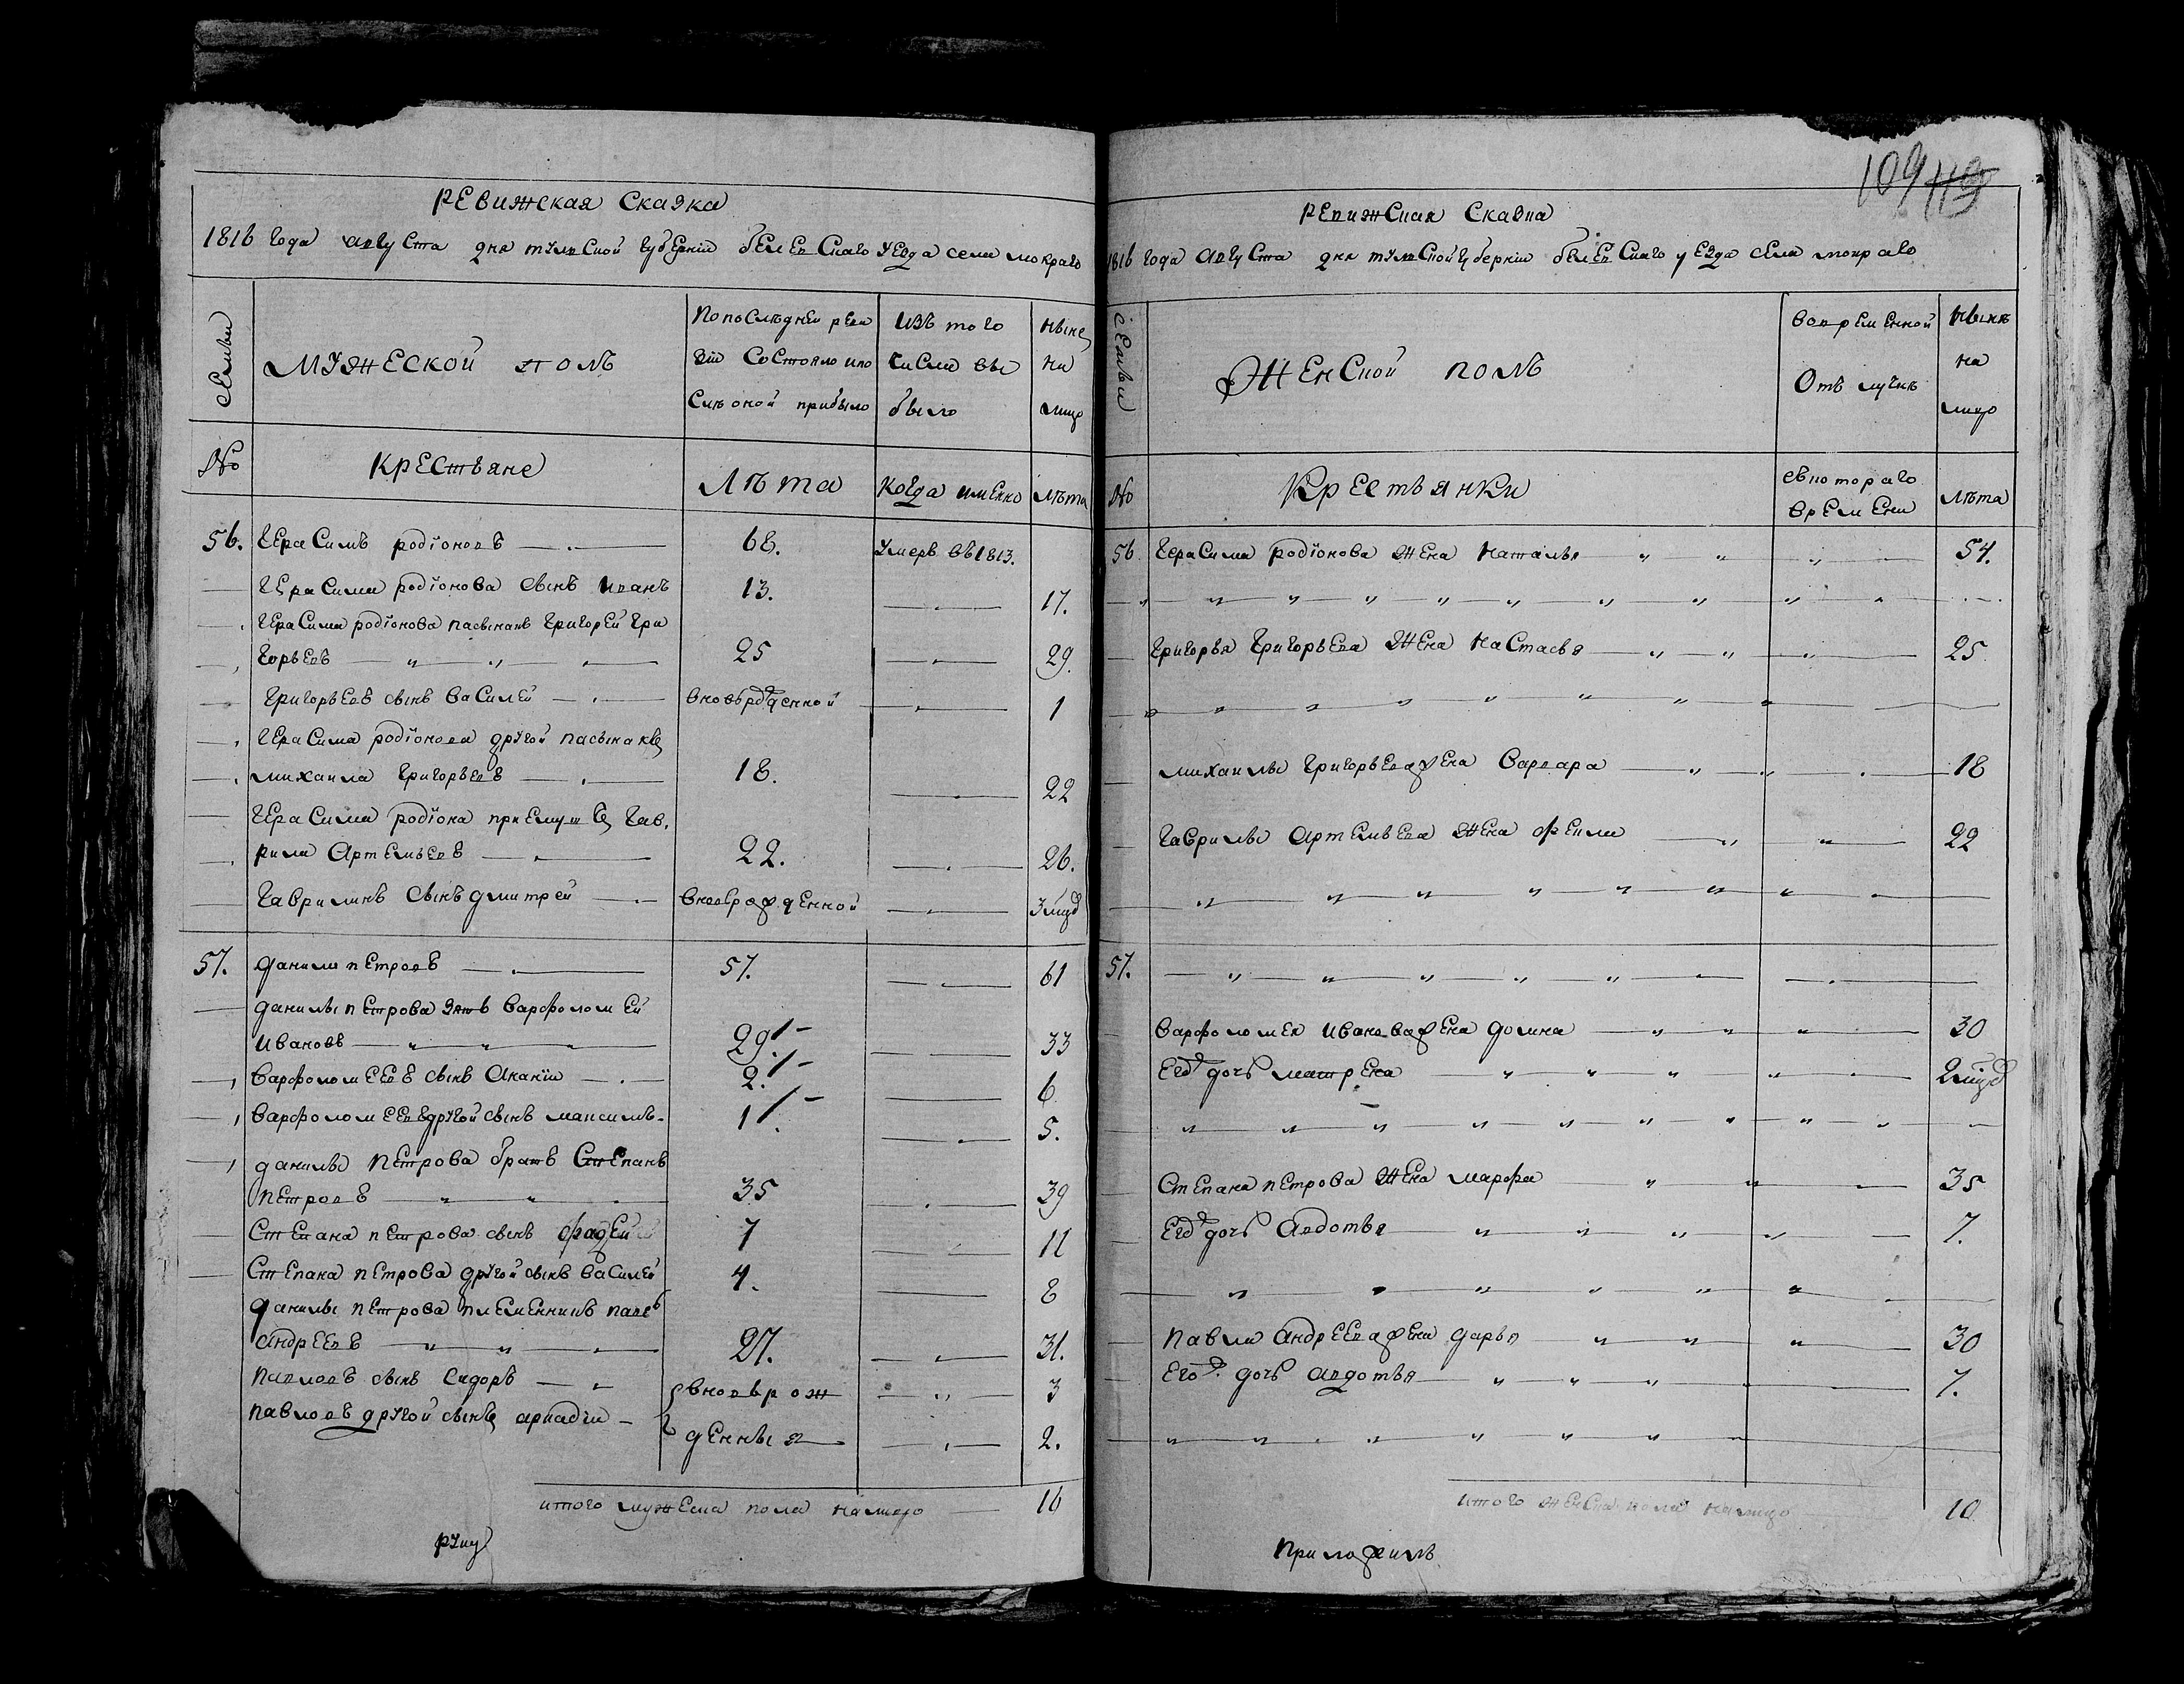 Ревижская Сказка
1816 года августа дня тульской губернии белевскаго уезда села мокраго
Семьи
мужеской полъ
По последнеи реви
зiи Состояло ипо
Слѣ оной прибыло
изъ того
числа вы
было
ныне
на
лицо
№
Крестьяне
Лѣта
Когда именно
лѣта
56. Герасимъ родiоновъ 68. Умеръ въ 1813.
Герасима родiонова сынъ иванъ 13. 17.
Герасима родiонова пасынакъ григорей гри
горьевъ 25 29.
Григорьевъ сынъ василей вновьрожденной 1
Герасима родiонова другой пасынакъ
михаила григорьевъ 18. 22
Герасима родiона приемышъ гав.
рила Артемьевъ 22. 26.
Гаврилинъ сынъ дмитрей вноврожденной 3
57. данила петровъ 57. 61
данилы петрова зять варфоломей
ивановъ 29. 33
варфоломеевъ сынъ Акакiи 2. 6
варфоломеевъ другой сынъ максимъ 1. 5.
данилы петрова братъ Степанъ
петровъ 35 39
Степана петрова сынъ фадей 7 11
Степана петрова другой сынъ василей 4. 8
данилы петрова племенникъ павеъ
андреевъ 27. 31.
павловъ сынъ Сидоръ вновьрож 3
павловъ другой сынъ аркадiи денныя 2.
итого мужеска пола налицо 16
руку
109 113
Ревижская Сказка
1816 года августа дня тульской губернии белевскаго уезда села мокраго
Семьи
Женской полъ
вовременной
Отлучкѣ
нынѣ
на
лицо
№
Крестьянки
съкотораго
времени
лѣта
56 Герасима родiонова жена наталья 54.
григорья григорьева жена настасья 25
михаилы григорьева жена варвара 18
гаврилы артемьева жена фекла 22
57.
варфоломея иванова жена домна 30
Его дочь матрена 2
Степана петрова жена марфа 35
Его дочь авдотья 7.
павла андреева жена дарья 30
Его дочь авдотья 7.
итого женска пола налицо 10
приложилъ